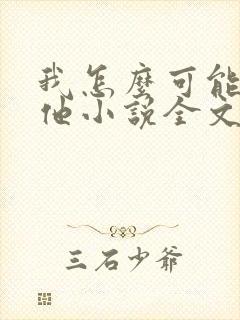 我怎麼可能
他小說全文
三石少爷